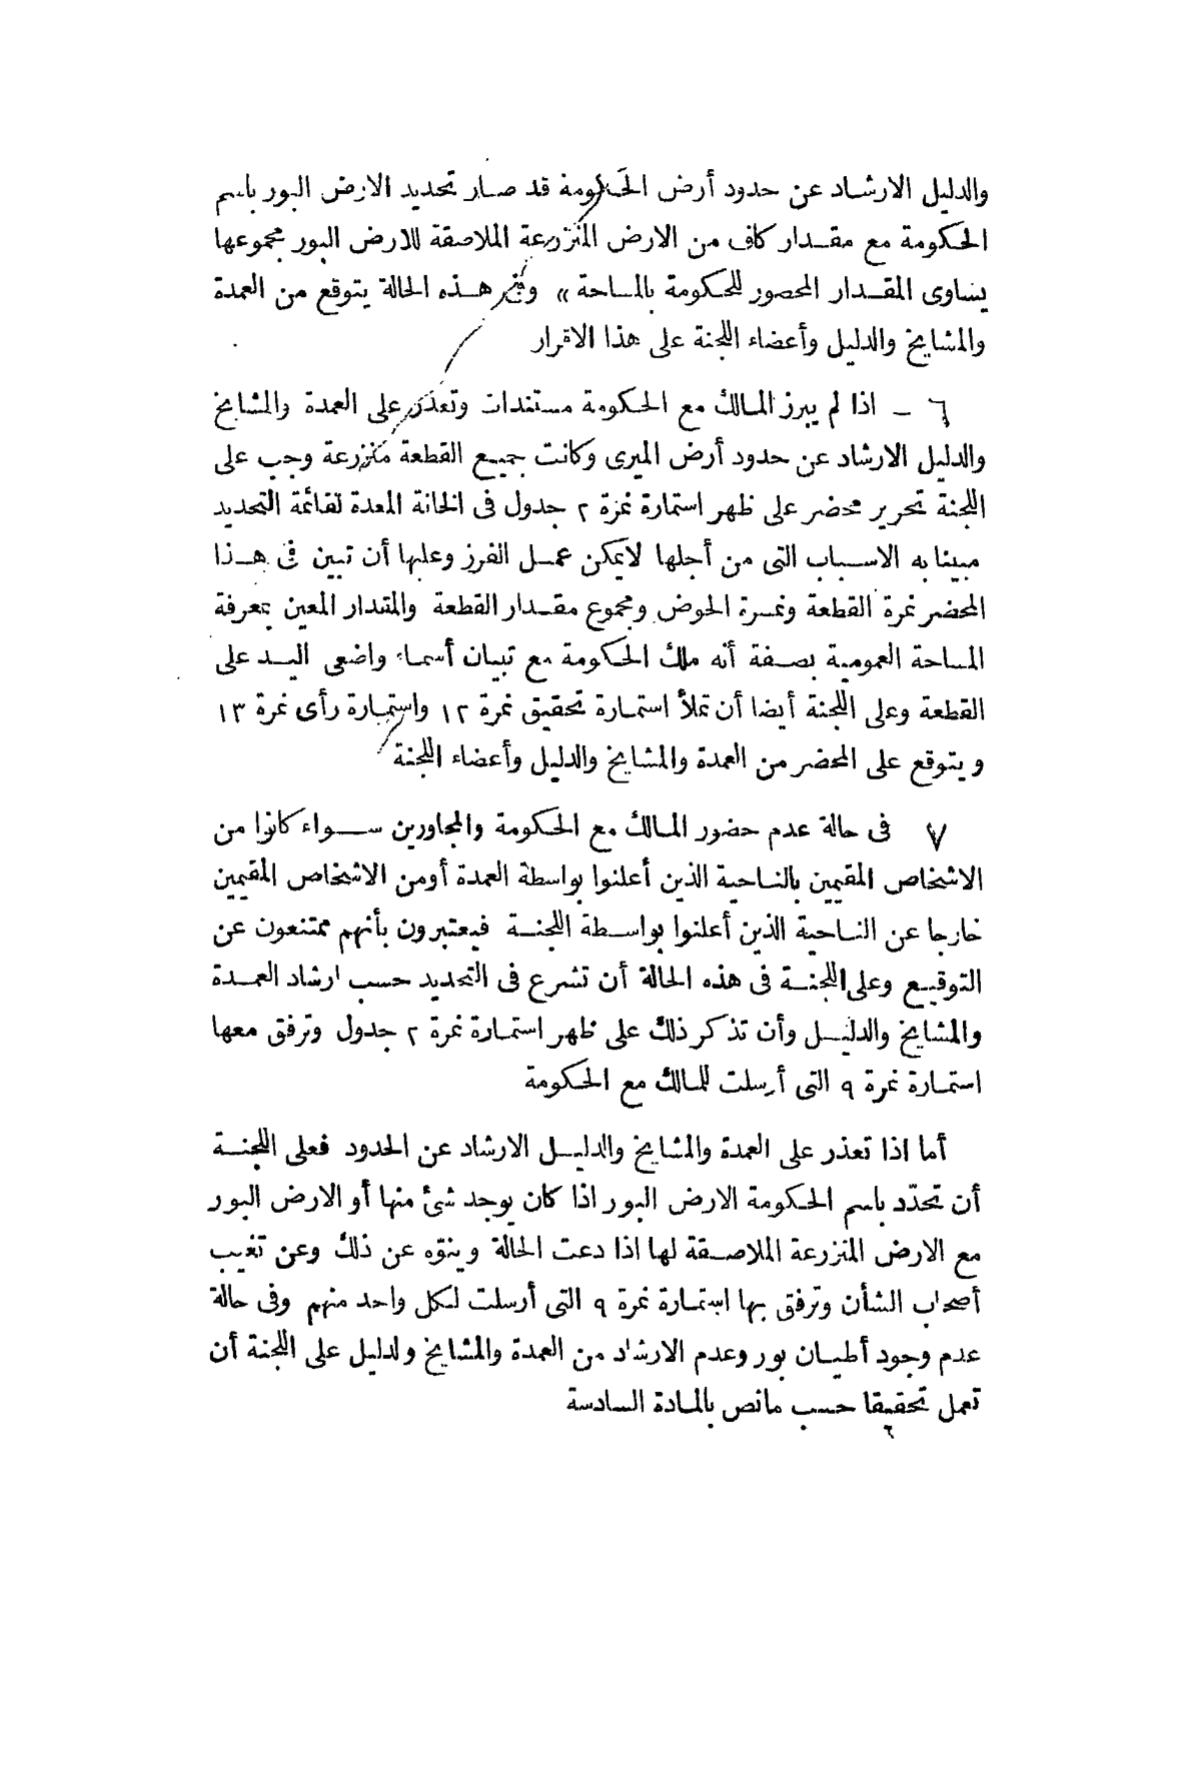 والدليل الارشاد عن حدود أرض الحكومة قد صار تحديد الارض البور باسم
الحكومة مع مقدار كاف من الارض المنزرعة الملاصقة للارض البور مجموعها
يساوى المقدار المحصور للحكومة بالمساحة » وفى هذه الحالة يتوقع من العمدة
والمشايخ والدليل وأعضاء اللجنة على هذا الاقرار
٦ – اذا لم يبرز المالك مع الحكومة مستندات وتعذر على العمدة والمشايخ
والدليل الارشاد عن حدود أرض الميرى وكانت جميع القطعة منزرعة وجب على
اللجنة تحرير محضر على ظهر استمارة نمرة ٢ جدول فى الخانة المعدة لقائمة التحديد
مبينا به الاسباب التى من أجلها لايمكن عمل الفرز وعليها أن تبين فى هذا
المحضر نمرة القطعة ونمرة الحوض ومجموع مقدار القطعة والمقدار المعين بمعرفة
المساحة العمومية بصفة أنه ملك الحكومة مع تبيان أسماء واضعى اليد على
القطعة وعلى اللجنة أيضا أن تملأ استمارة تحقيق نمرة ١٢ واستمارة رأى نمرة ١٣
ويتوقع على المحضر من العمدة والمشايخ والدليل وأعضاء اللجنة
٧ فى حالة عدم حضور المالك مع الحكومة والمجاورين سواء كانوا من
الاشخاص المقيمين بالناحية الذين أعلنوا بواسطة العمدة أومن الاشخاص المقيمين
خارجا عن الناحية الذين أعلنوا بواسطة اللجنة فيعتبرون بأنهم ممتنعون عن
التوقيع وعلى اللجنة فى هذه الحالة أن تشرع فى التحديد حسب ارشاد العمدة
والمشايخ والدليل وأن تذكر ذلك على ظهر استمارة نمرة ٢ جدول وترفق معها
استمارة نمرة ٩ التى أرسلت للمالك مع الحكومة
أما اذا تعذر على العمدة والمشايخ والدليل الارشاد عن الحدود فعلى اللجنة
أن تحدّد باسم الحكومة الارض البور اذا كان يوجد شئ منها أو الارض البور
مع الارض المنزرعة الملاصقة لها اذا دعت الحالة وينوّه عن ذلك وعن تغيب
أصحاب الشأن وترفق بها استمارة نمرة ٩ التى أرسلت لكل واحد منهم وفى حالة
عدم وجود أطيان بور وعدم الارشاد من العمدة والمشايخ ولدليل على اللجنة أن
تعمل تحقيقا حسب مانص بالمادة السادسة